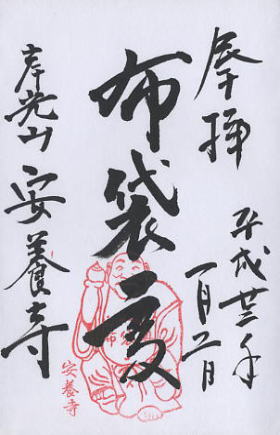 奉拝
平成廿三年
一月二日
布袋尊
寿光山 安養寺
安養寺